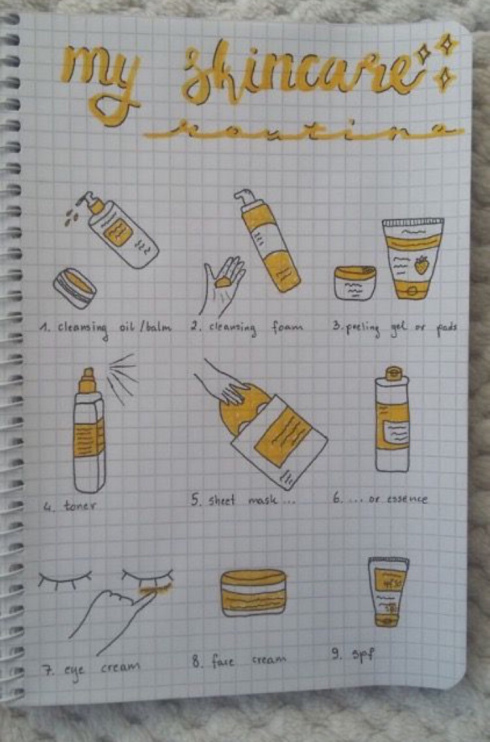 my skincare
routine
1. cleansing oil/balm
2. cleansing foam
3. peeling gel or pads
4. toner
5. sheet mask ...
6. ... or essence
7. eye cream
8. face cream
9. spf